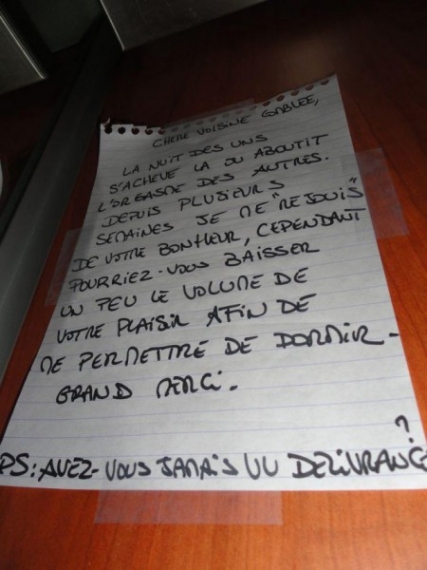 CHERE VOISINE GABLEE,
LA NUIT DES UNS
S'ACHEVE LA OU ABOUTIT
L'ORGASME DES AUTRES.
DEPUIS PLUSIEURS
SEMAINES JE ME "REJOUIS"
DE VOTRE BONHEUR, CEPENDANT
POURRIEZ-VOUS BAISSER
UN PEU LE VOLUME DE
VOTRE PLAISIR AFIN DE
ME PERMETTRE DE DORMIR -
GRAND MERCI.
PS: AVEZ-VOUS JAMAIS VU DELIVRANCE ?